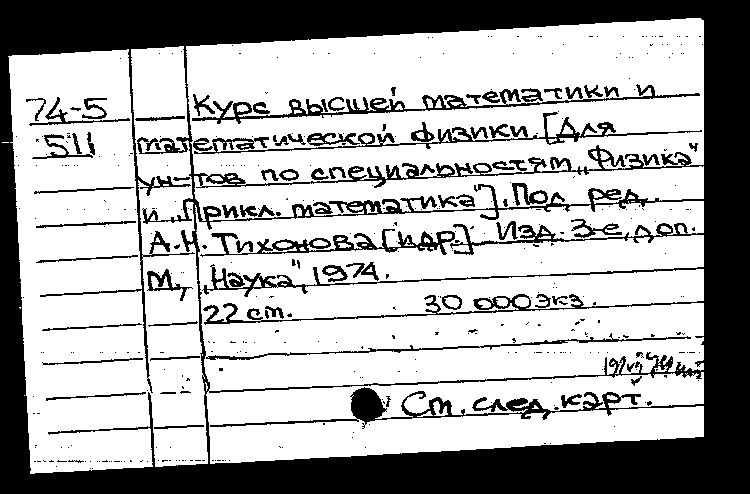 74-5 Курс высшей математики и
511 математической физики. [Для
ун-тов по специальностям „Физика"
и „Прикл. математика"]. Под ред.
А.Н. Тихонова [и др.] Изд. 3-е, доп.
М., „Наука", 1974.
22 cm. 30 000 экз.
Cm. след. карт.